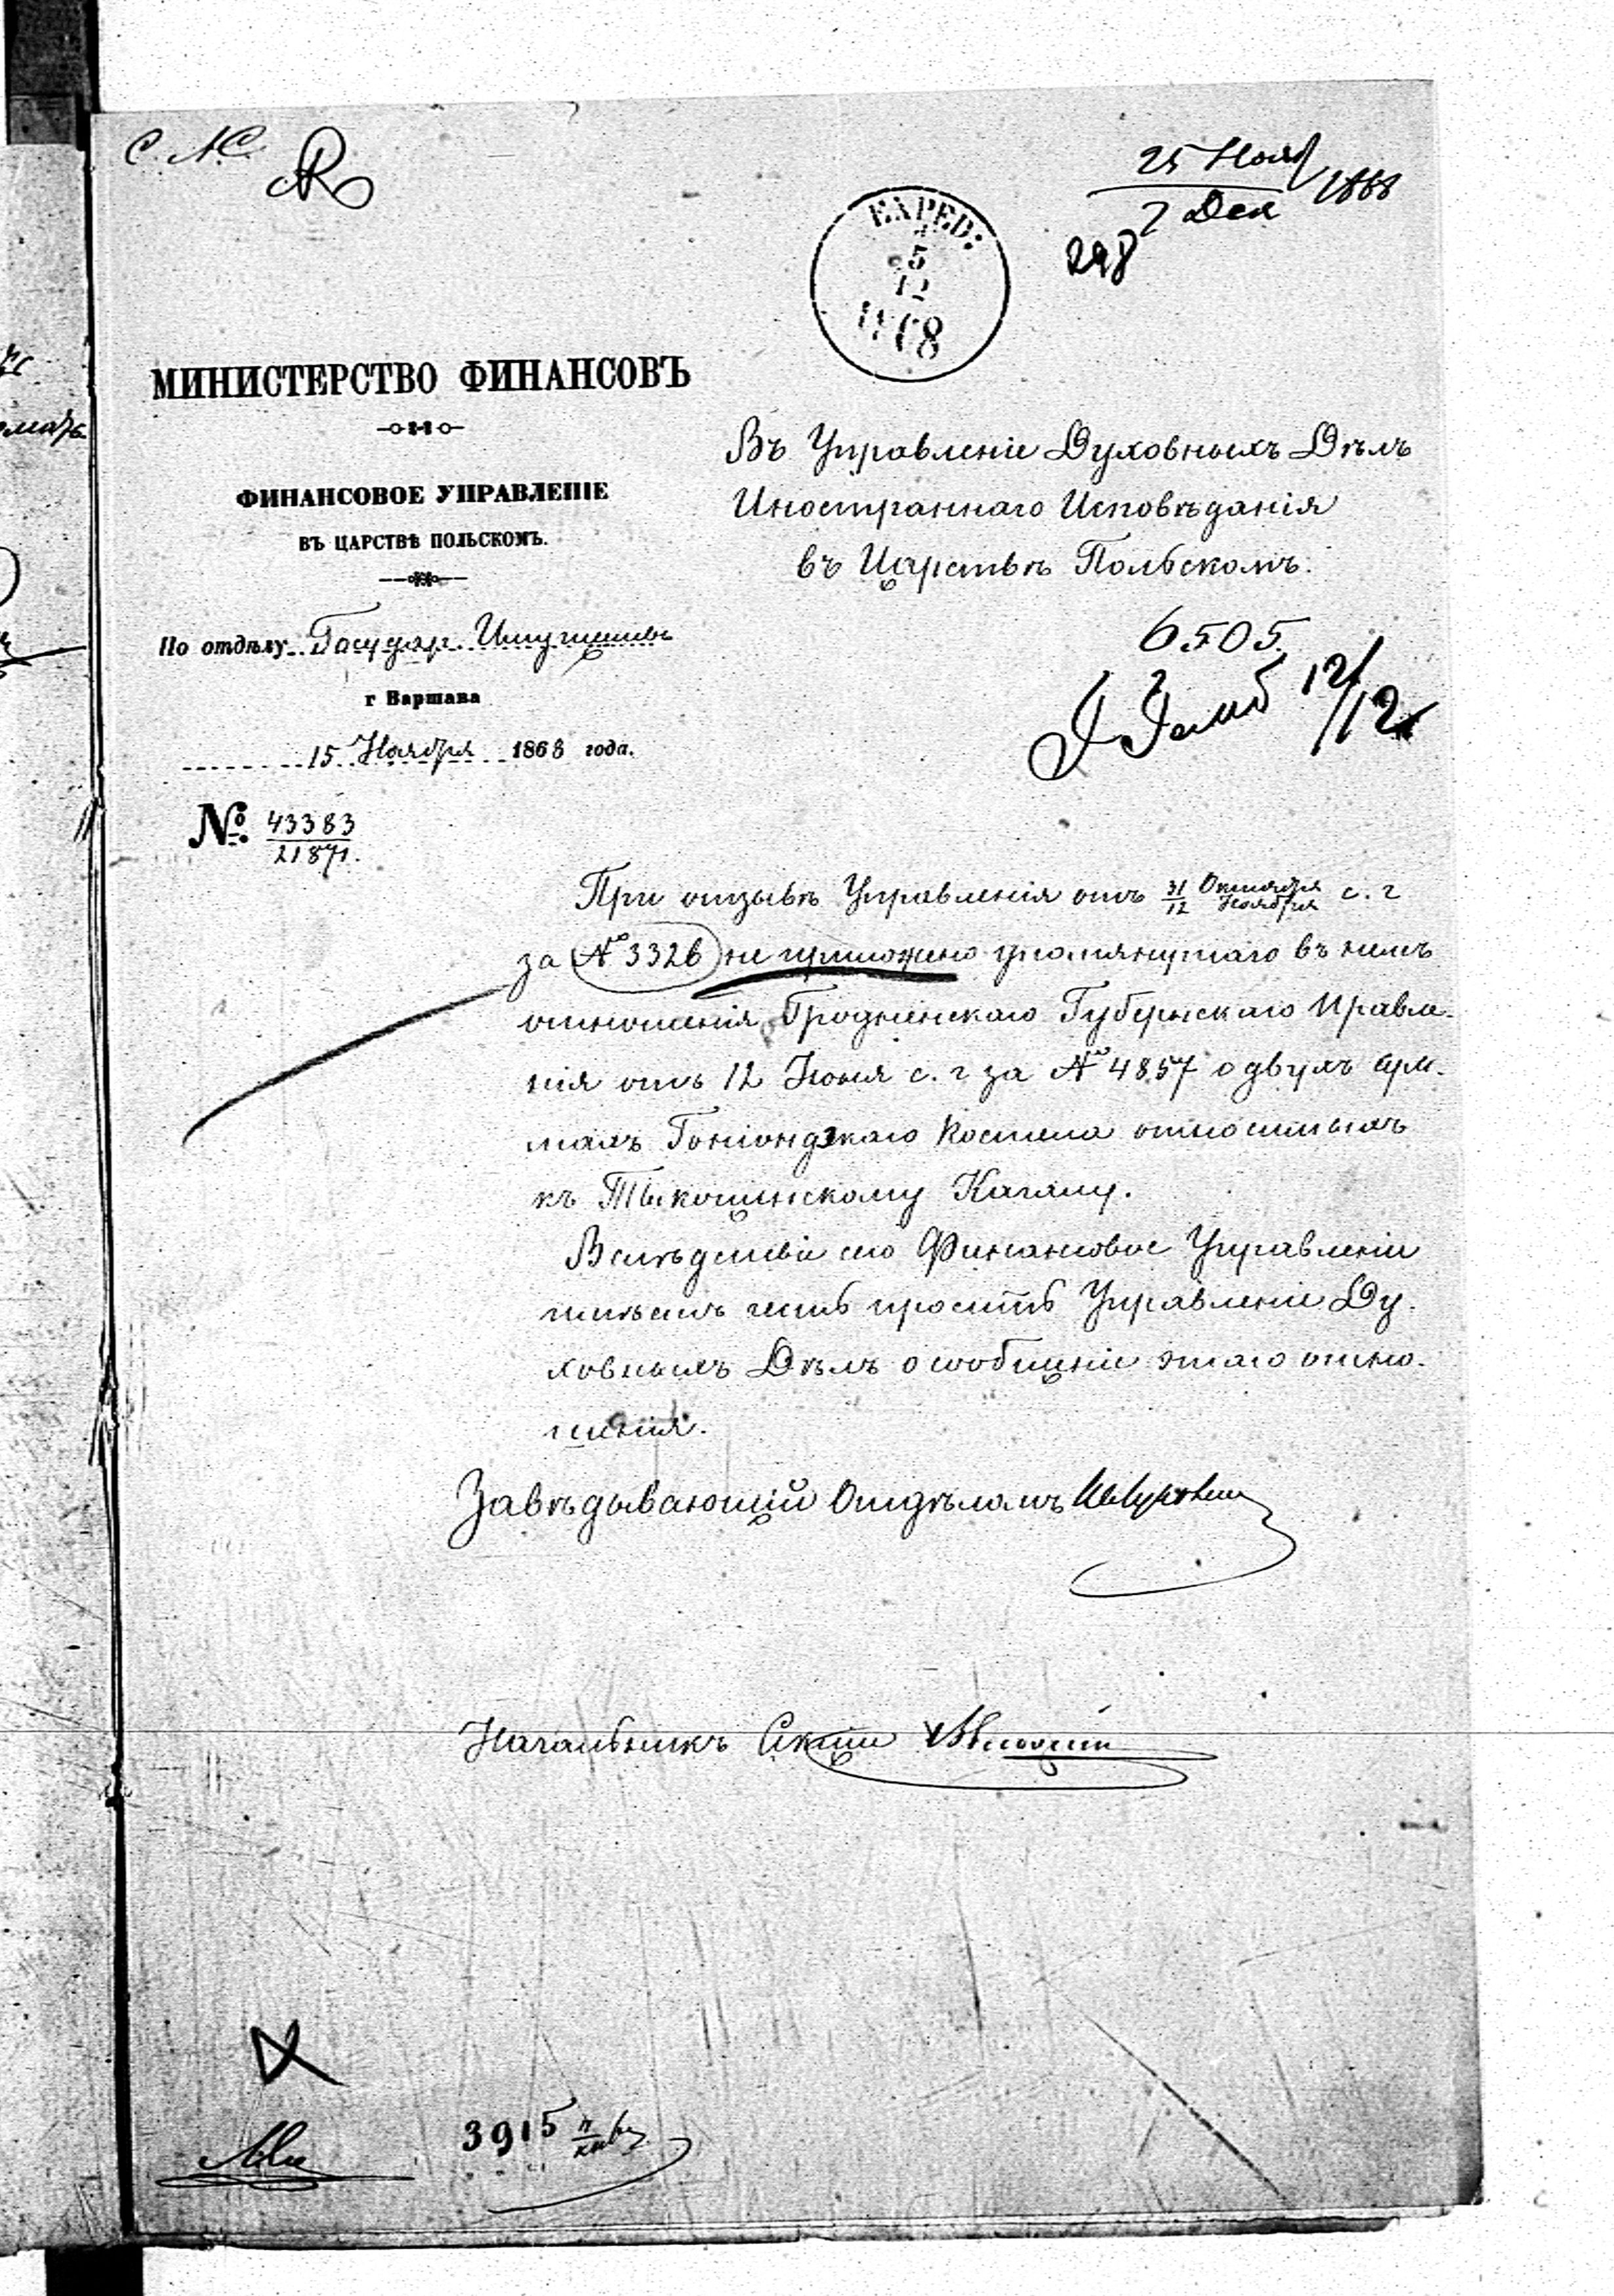 С. N. C.
25 Нояб
7 Дек 1868
298
EXPED:
5
12
1868
МИНИСТЕРСТВО ФИНАНСОВЪ
ФИНАНСОВОЕ УПРАВЛЕНІЕ
ВЪ ЦАРСТВѢ ПОЛЬСКОМЪ.
По отдѣлу Государ. Имуществъ
г Варшава
15 Ноября 1868 года.
№ 43383
21871.
Въ Управленіе Духовныхъ Дѣлъ
Иностраннаго Исповѣданія
въ Царствѣ Польскомъ.
6505.
12/12
При отзывѣ Управленія отъ 31/12 Октября/Ноября с. г
за № 3326 не приложено упомянутаго въ немъ
отношенія Гродненскаго Губернскаго Правле-
нія отъ 12 Іюня с. г за № 4857 о двухъ сум-
махъ Гоніондзкаго Костела относимыхъ
къ Тыкоцинскому Кагалу.
Вслѣдствіе сего Финансовое Управленіе
имѣетъ честь просить Управленіе Ду-
ховныхъ Дѣлъ о сообщеніи этаго отно-
шенія.
Завѣдывающій Отдѣломъ
Начальникъ Секціи
3915